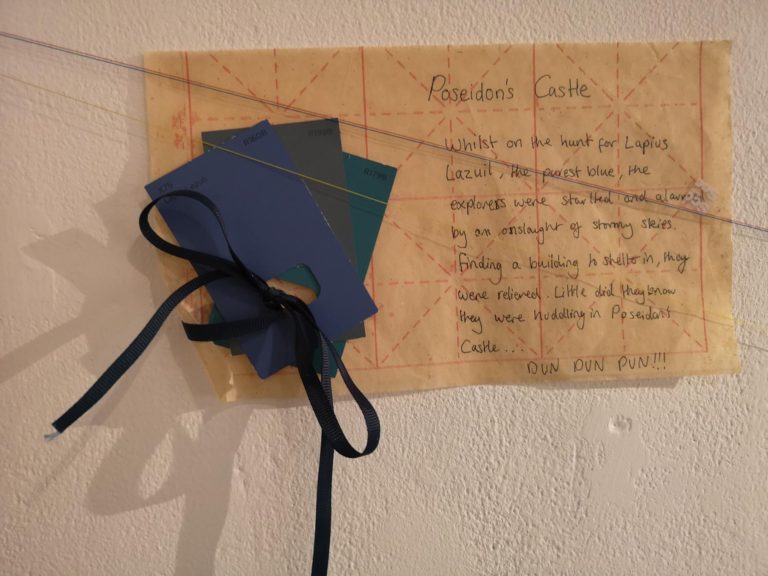 Poseidon's Castle
Whilst on the hunt for Lapius
Lazuil, the purest blue, the
explorers were startled and alarmed
by an onslaught of stormy skies.
Finding a building to shelter in, they
were relieved. Little did they know
they were huddling in Poseidon's
Castle...
DUN DUN DUN!!!
R160B
R179B